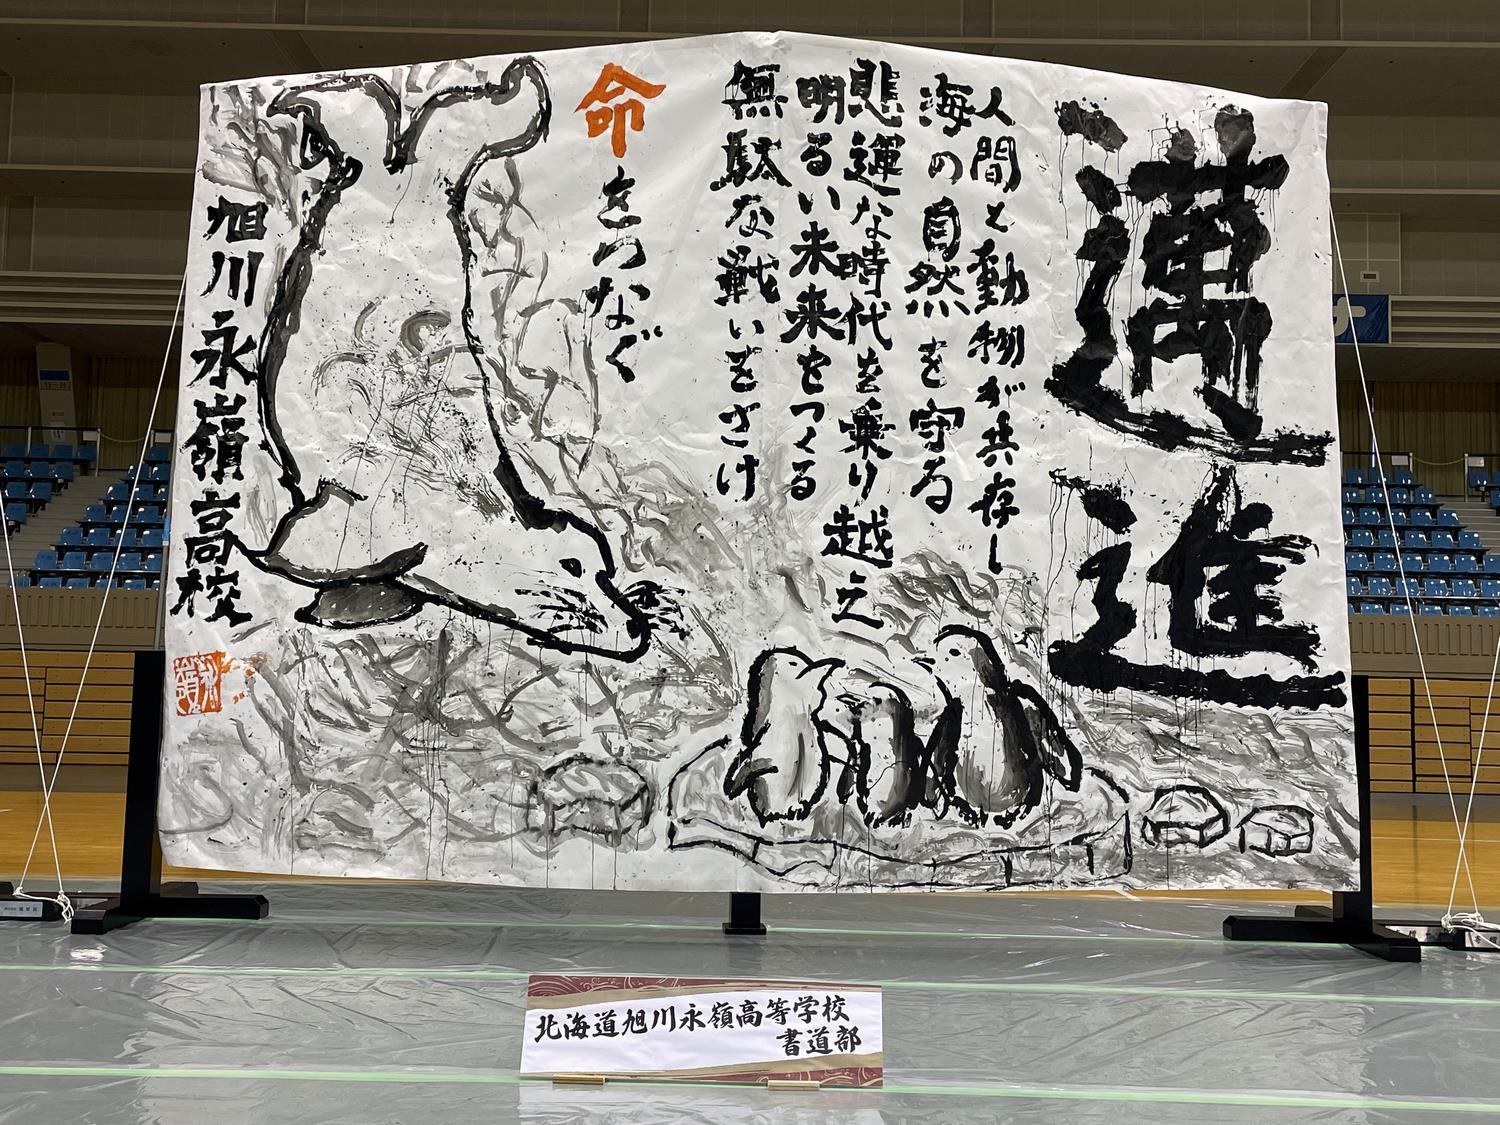 邁進
人間と動物が共存し
海の自然を守る
悲運な時代を乗り越え
明るい未来をつくる
無駄な戦いをさけ
命をつなぐ
旭川永嶺高校
永嶺
北海道旭川永嶺高等学校
書道部